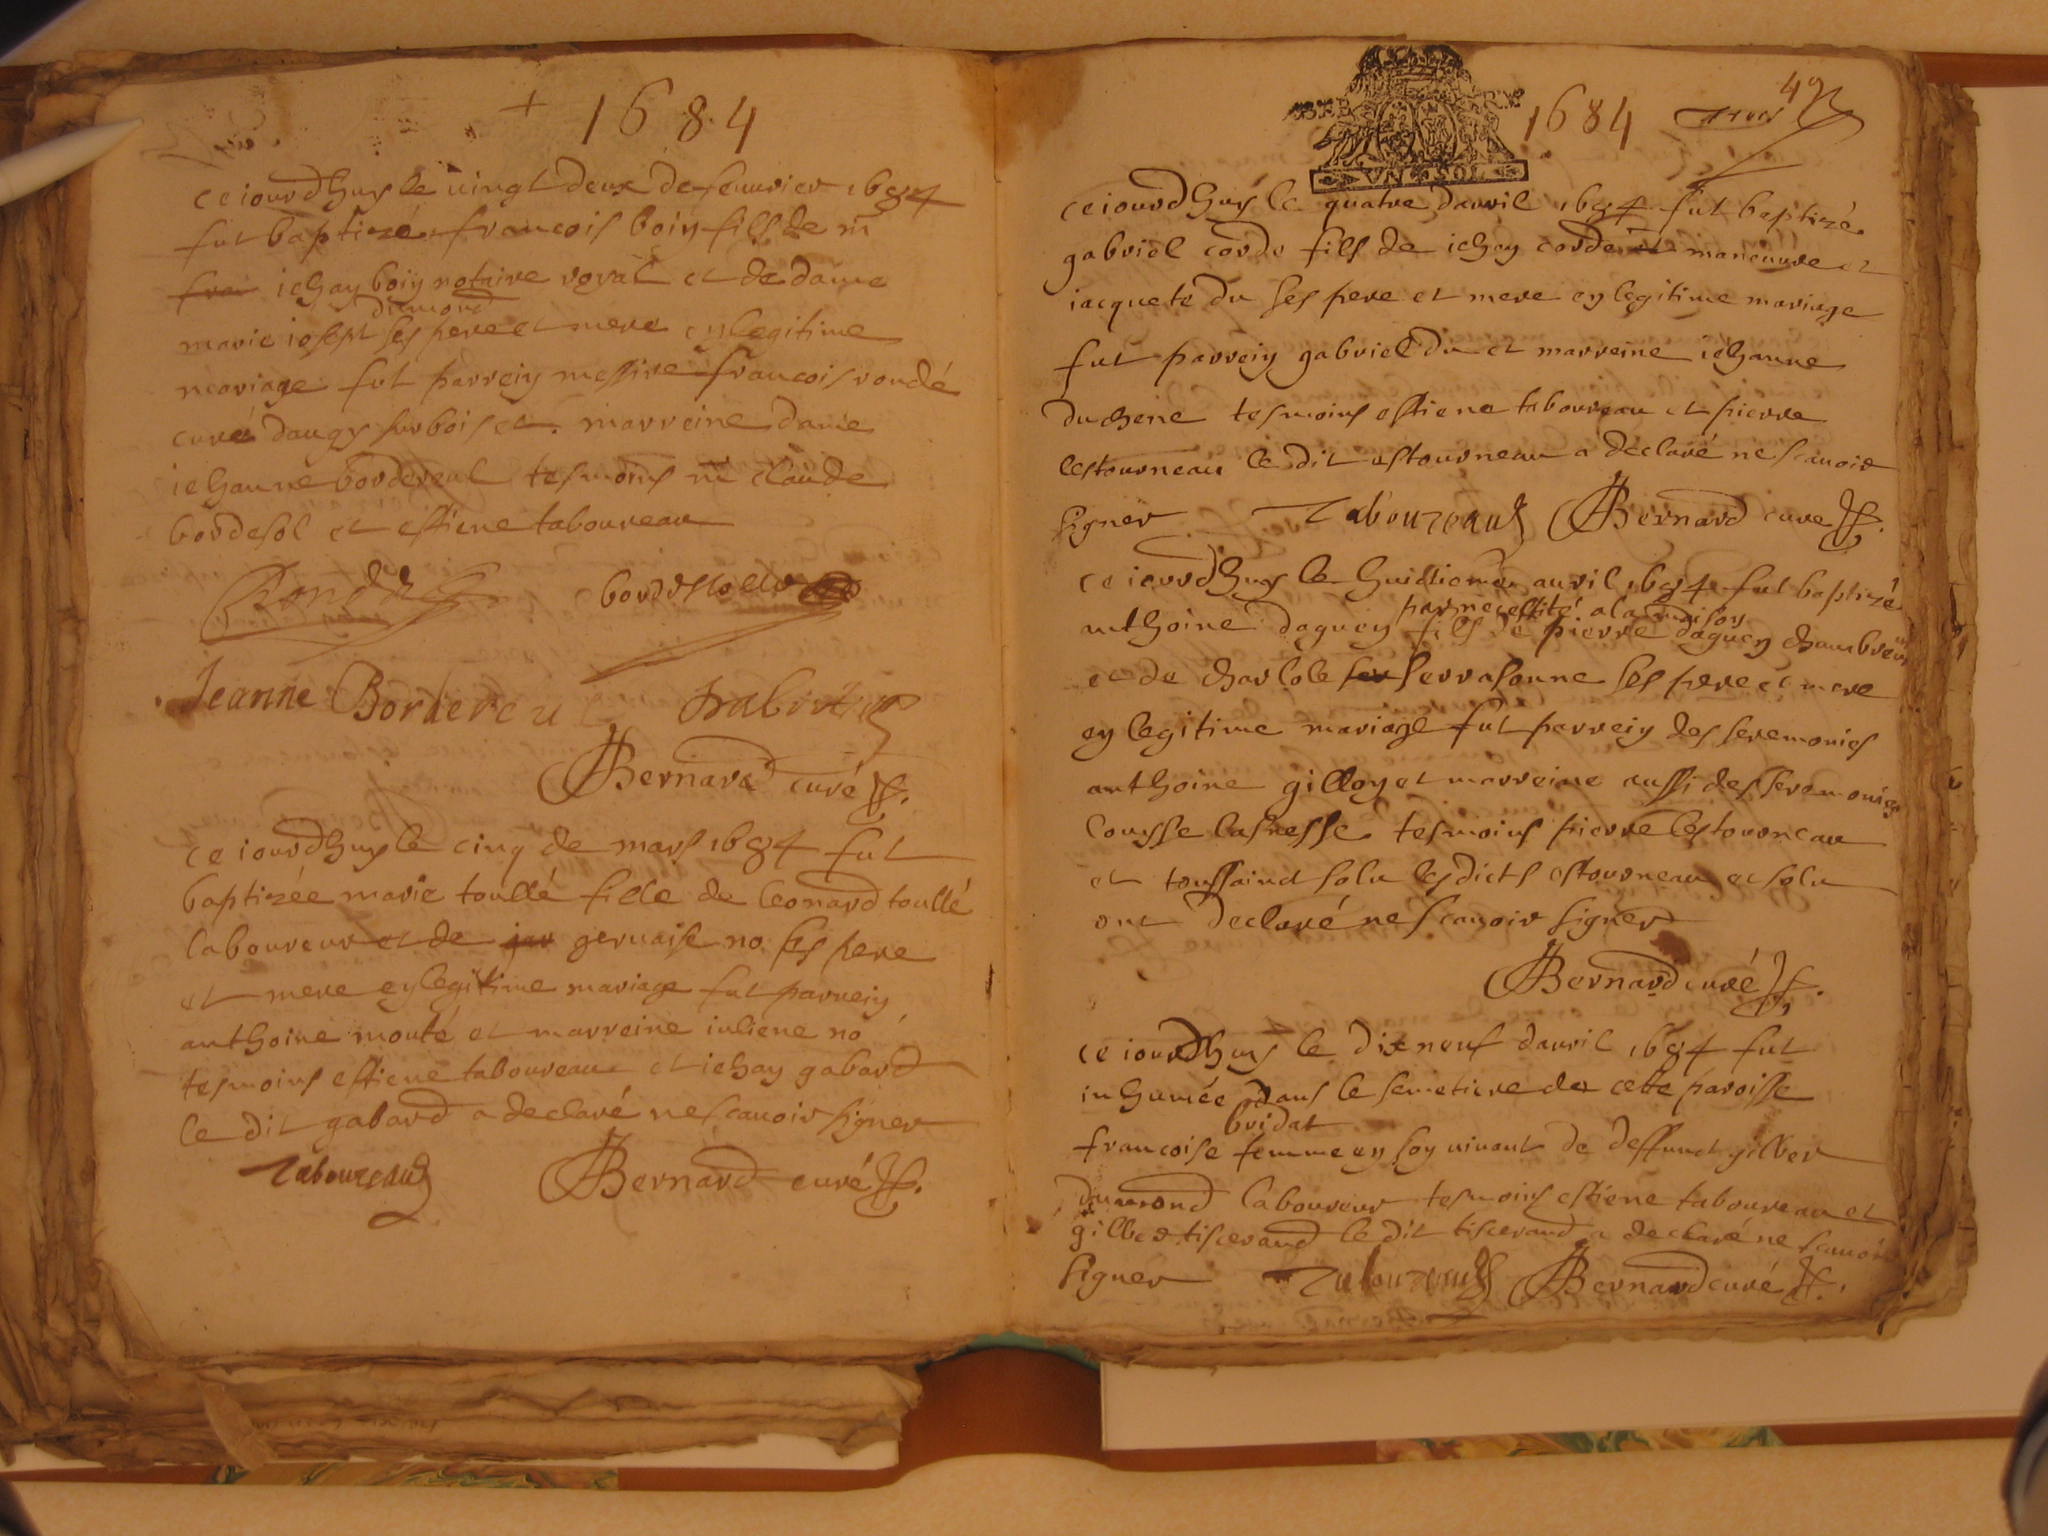 + 1684
ceiourdhuy le uingt deux de feuurier 1684
fut baptizé francois boiy fils de m
frai iehay boiy notaire royal et de dame
dumond
marie iosept ses pere et mere ey legitime
mariage fut parreiy messire francois rondé
curé daugy sur bois et marreine dame
iehanne bordereul tesmoins m claude
bordesol et estiene taboureau
Rondé
Jeanne Bordereul
Bernard curé
ce iourdhuy le cinq de mars 1684 fut
baptizée marie toullé fille de leonard toullé
laboureur et de gervaise no ses pere
et mere ey legitime mariage fut parreiy
anthoine monté et marreine iuliene no
tesmoins estiene taboureau et iehay gabard
le dit gabard a declaré ne scauoir signer
Taboureau Bernard curé
UN SOL
1684
ceiourdhuy le quatre dauril 1684 fut baptizé
gabriel corde fils de iehay corde maneuure et
iacquete du ses pere et mere ey legitime mariage
fut parreiy gabriel du et marreine iehanne
duchene tesmoins estiene taboureau et pierre
lestourneau le dit estourneau a declaré ne scauoir
signer Taboureau Bernard curé
ce iourdhuy le huictiome auril 1684 fut baptizé
par necessité a la maisoy
anthoine daguey fils de pierre daguey
et de charlote ser serrasonne ses pere et mere
ey legitime mariage fut parreiy des seremonies
anthoine gilloy et marreine aussi des seremonies
louysse lasnesse tesmoins pierre lestourneau
et toussainct solu lesdicts estourneau et solu
ont declaré ne scauoir signer
Bernard curé
ce iourdhuy le dixneuf dauril 1684 fut
inhumée dans le semetiere de cete paroisse
bridat
francoise femme ey soy uiuant de deffunct gilber
dumond laboureur tesmoins estiene taboureau et
gilber tiscerand le dit tiscerand a declaré ne scauoir
signer Taboureau Bernard curé